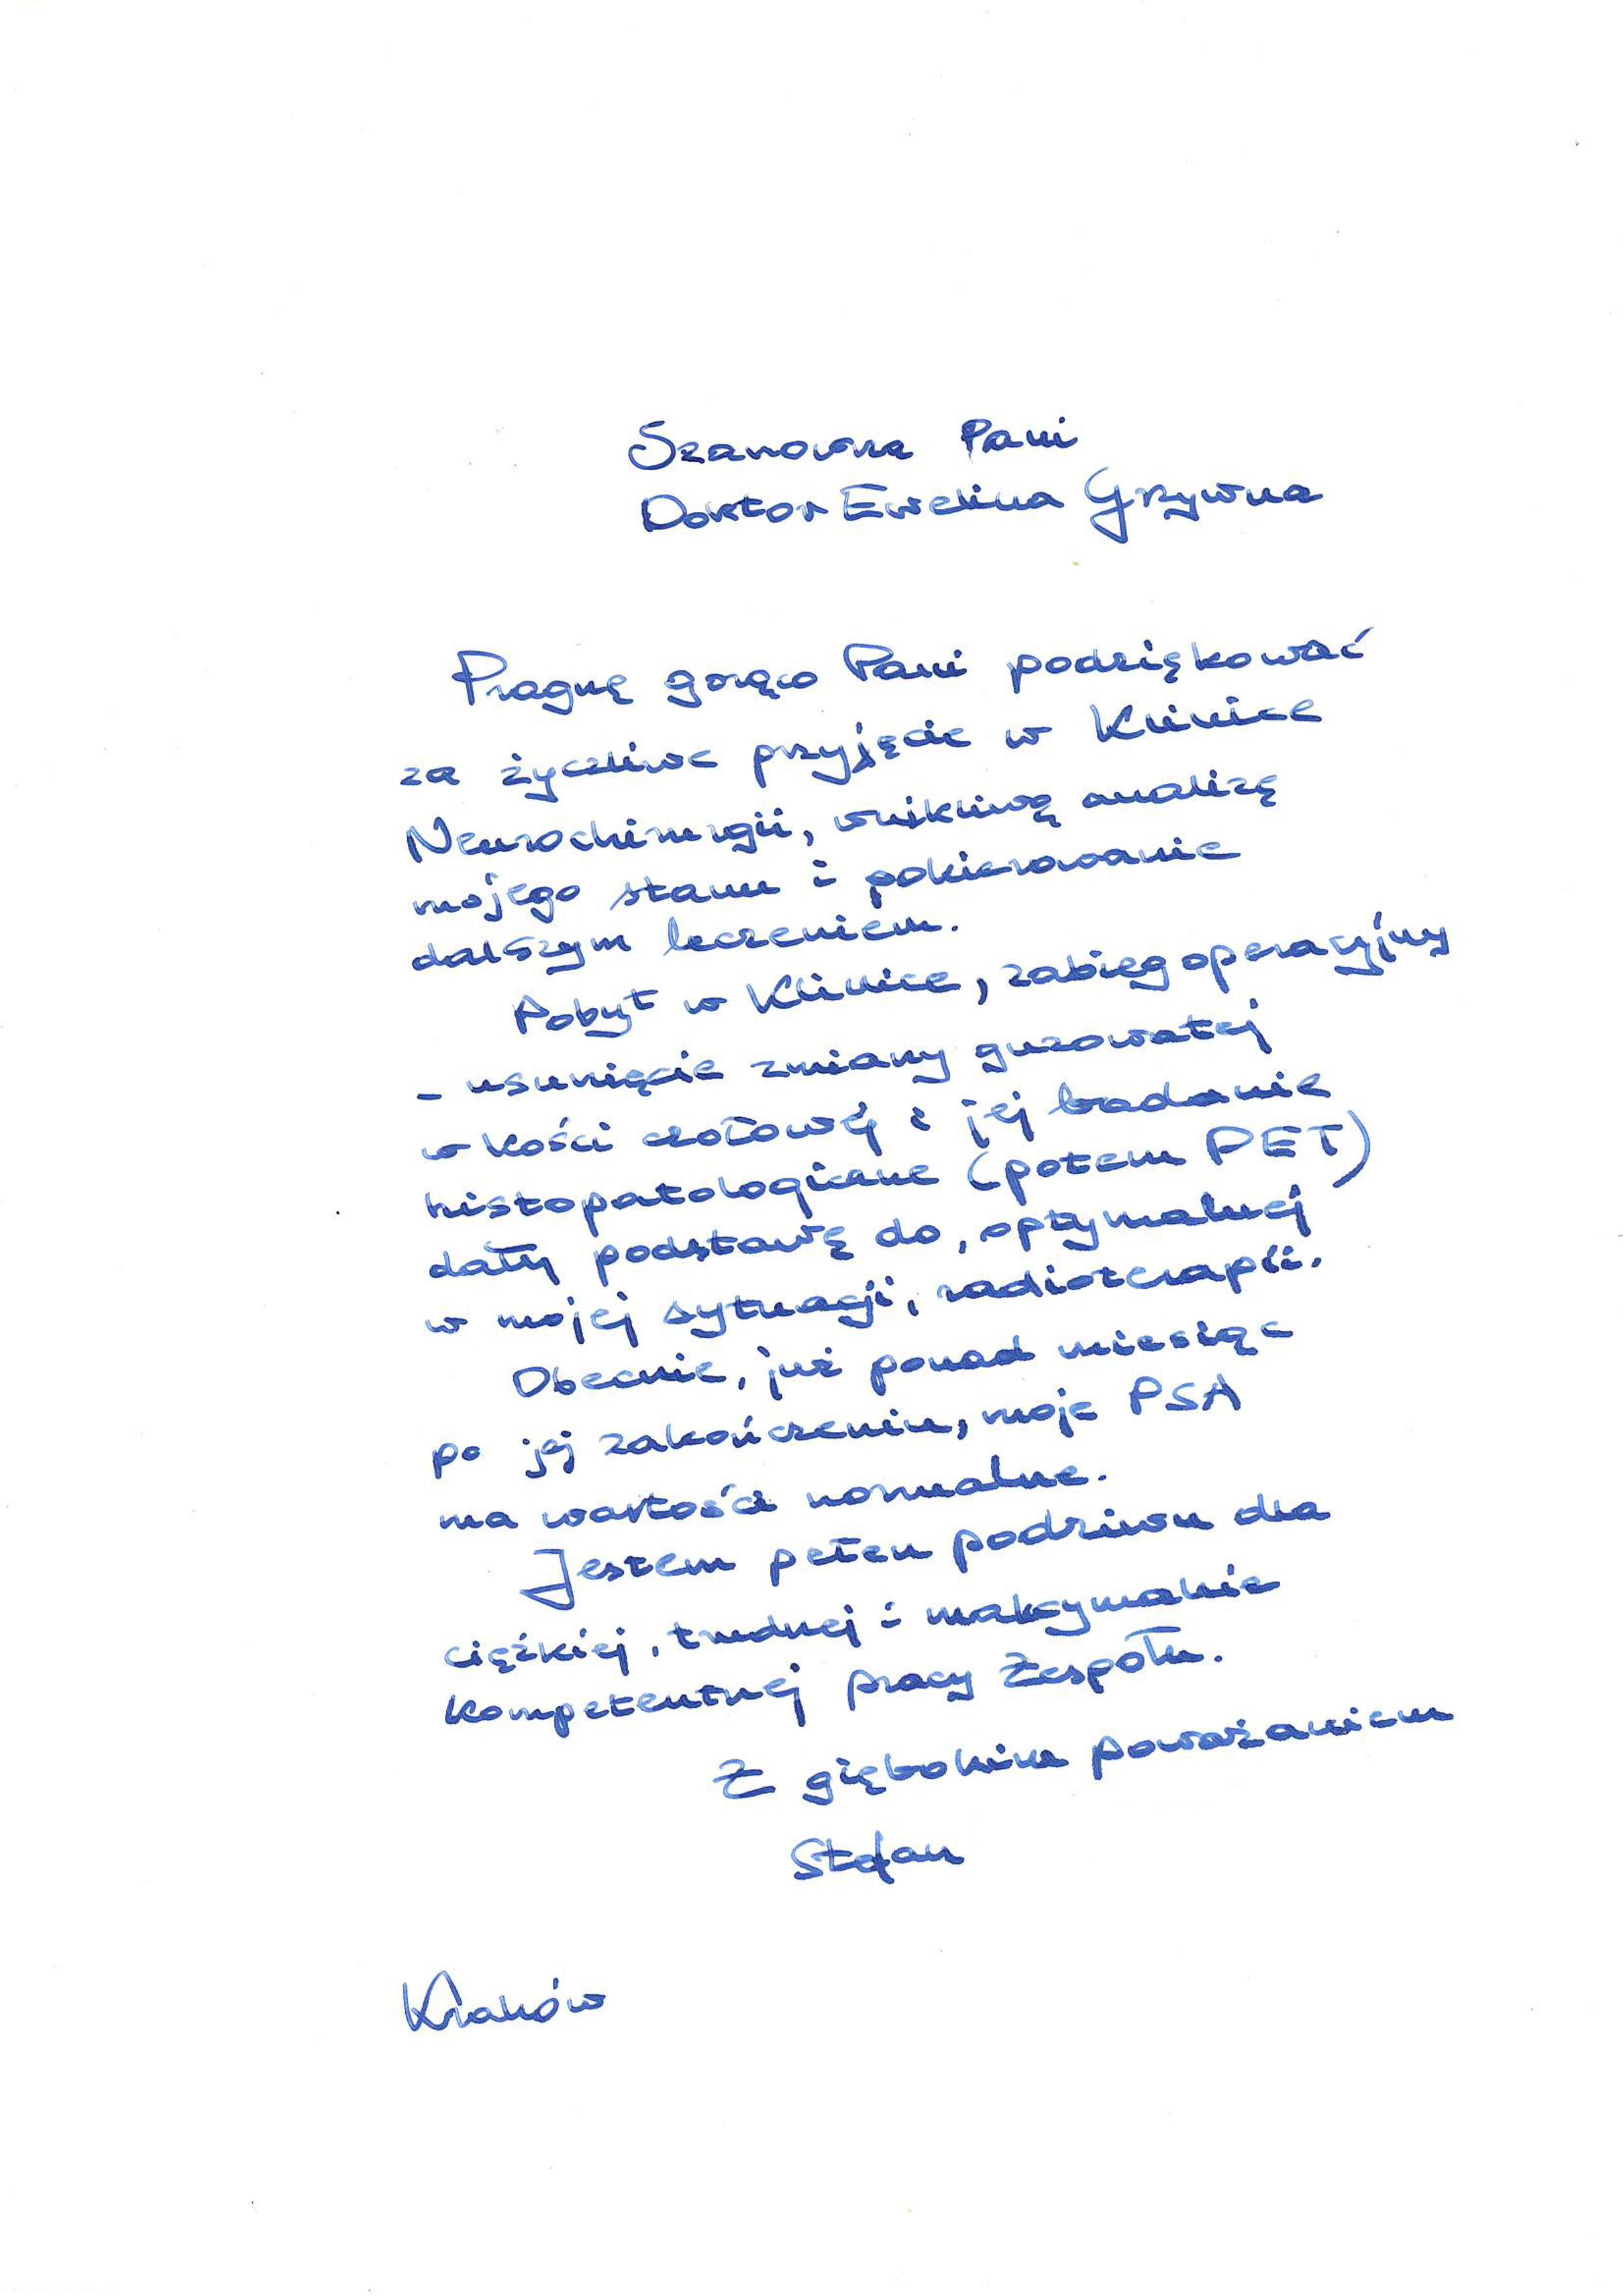 Szanowna Pani
Doktor Ewelina Grzywna
Pragnę gorąco Pani podziękować
za życzliwe przyjęcie w Klinice
Neurochirurgii, wnikliwą analizę
mojego stanu i pokierowanie
dalszym leczeniem.
Pobyt w Klinice, zabieg operacyjny
- usunięcie zmiany guzowatej
w kości czołowej i jej badanie
histopatologiczne (potem PET)
dały podstawę do, optymalnej
w mojej sytuacji, radioterapii.
Obecnie, już ponad miesiąc
po jej zakończeniu, moje PSA
ma wartości normalne.
Jestem pełen podziwu dla
ciężkiej, trudnej i maksymalnie
kompetentnej pracy Zespołu.
Z głębokim poważaniem
Stefan
Kraków